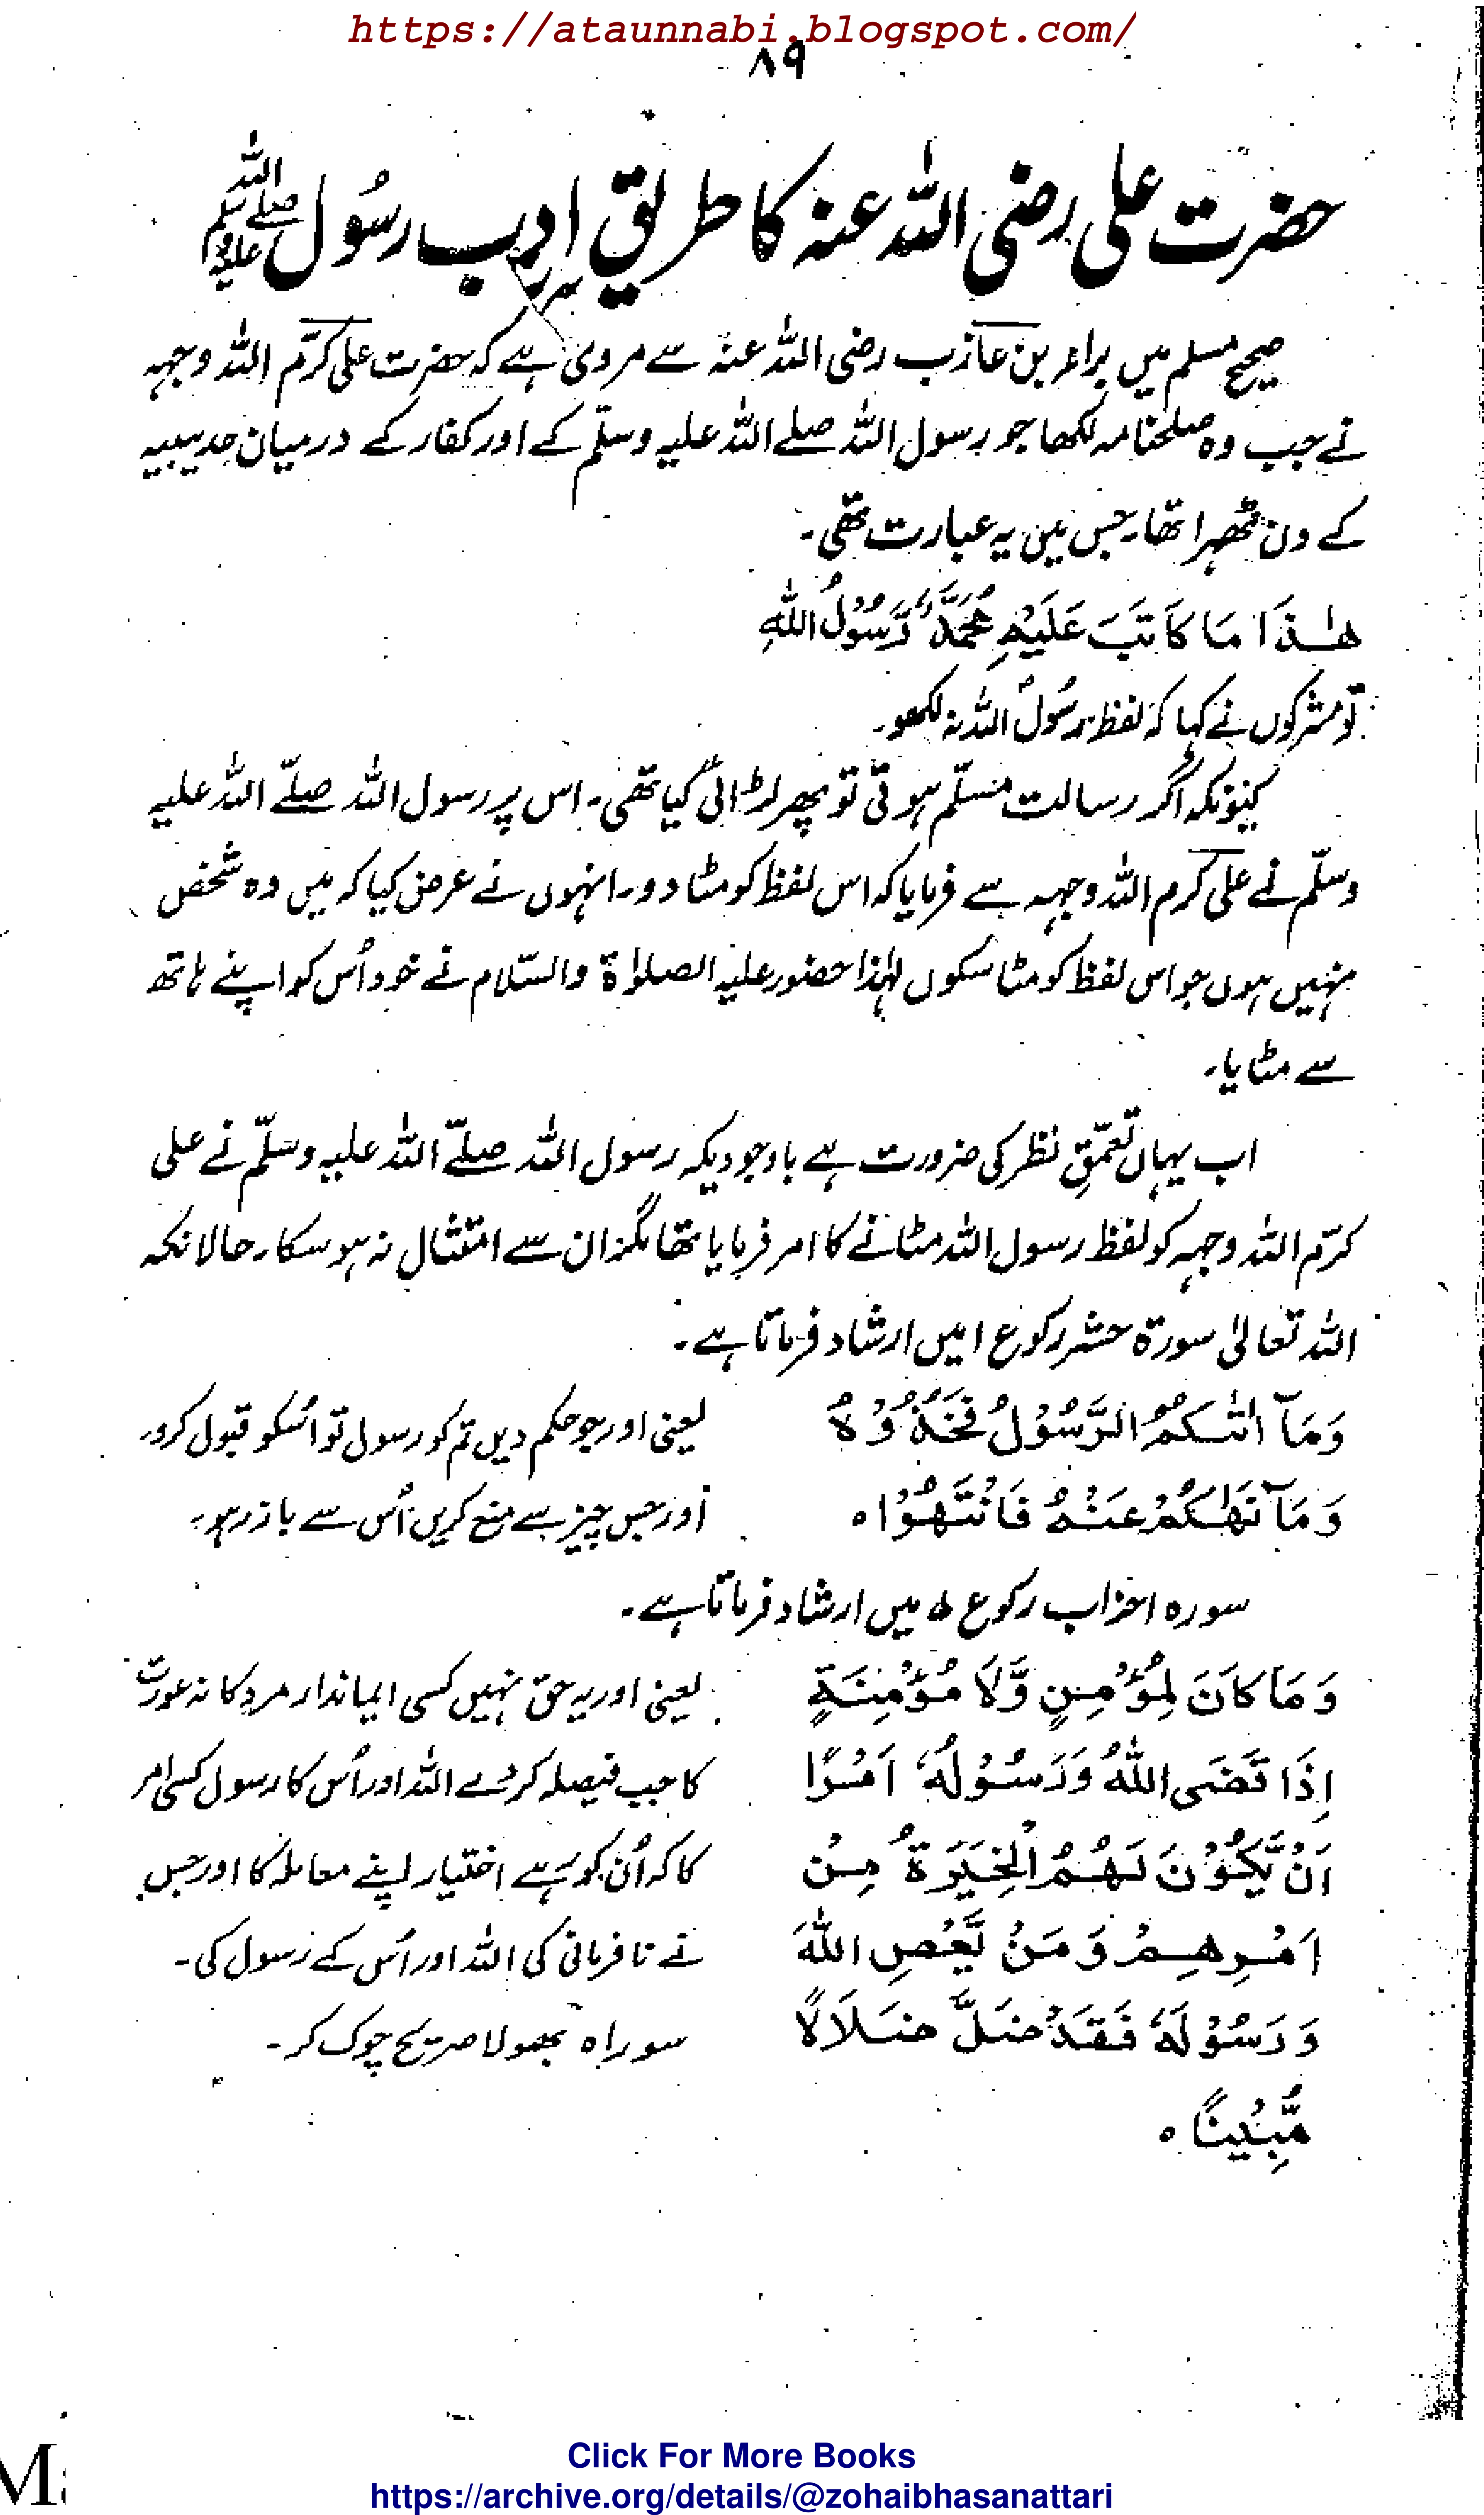 https://ataunnabi.blogspot.com/
۸۹
حضرت علی رضی اللہ عنہ کا طریقِ ادب رسُول صلے اللہ علیہ وسلم
صحیح مسلم میں براء بن عازب رضی اللہ عنہ سے مروی ہے کہ حضرت علی کرّم اللہ وجہہ
نے جب وہ صلحنامہ لکھا جو رسول اللہ صلے اللہ علیہ وسلّم کے اور کفار کے درمیان حدیبیہ
کے دن ٹھہرا تھا۔ جس میں یہ عبارت تھی۔
ھٰذَا مَا کَاتَبَ عَلَیْہِ مُحَمَّدٌ رَّسُوْلُ اللہِ
تو مشرکوں نے کہا کہ لفظ رسُول اللہ نہ لکھو۔
کیونکہ اگر رسالت مسلّم ہوتی تو پھر لڑائی کیا تھی۔ اس پر رسول اللہ صلّے اللہ علیہ
وسلّم نے علی کرم اللہ وجہہ سے فرمایا کہ اس لفظ کو مٹا دو۔ انہوں نے عرض کیا کہ میں وہ شخص
نہیں ہوں جو اس لفظ کو مٹا سکوں لہٰذا حضور علیہ الصلوٰۃ والسّلام نے خود اُس کو اپنے ہاتھ
سے مٹایا۔
اب یہاں تعمّقِ نظر کی ضرورت ہے باوجودیکہ رسول اللہ صلّے اللہ علیہ وسلّم نے علی
کرّم اللہ وجہہ کو لفظ رسول اللہ مٹانے کا امر فرمایا تھا مگر ان سے امتثال نہ ہو سکا۔ حالانکہ
اللہ تعالیٰ سورۃ حشر رکوع ۱ میں ارشاد فرماتا ہے۔
وَمَآ اٰتٰکُمُ الرَّسُوْلُ فَخُذُوْہُ
یعنی اور جو حکم دیں تم کو رسول تو اُسکو قبول کرو۔
وَمَا نَھٰکُمْ عَنْہُ فَانْتَھُوْا ہ
اور جس چیز سے منع کریں اُس سے باز رہو۔
سورہ احزاب رکوع ۵ میں ارشاد فرماتا ہے۔
وَمَا کَانَ لِمُؤْمِنٍ وَّلَا مُؤْمِنَۃٍ
یعنی اور یہ حق نہیں کسی ایماندار مرد کا نہ عورت
اِذَا قَضَی اللہُ وَرَسُوْلُہٗ اَمْرًا
کا جب فیصلہ کر دے اللہ اور اُس کا رسول کسی امر
اَنْ یَّکُوْنَ لَھُمُ الْخِیَرَۃُ مِنْ
کا کہ اُن کو رہے اختیار اپنے معاملہ کا اور جس
اَمْرِھِمْ وَمَنْ یَّعْصِ اللہَ
نے نافرمانی کی اللہ اور اُس کے رسول کی۔
وَرَسُوْلَہٗ فَقَدْ ضَلَّ ضَلَالًا
سو راہ بھولا صریح چوک کر۔
مُّبِیْنًا ہ
Click For More Books
https://archive.org/details/@zohaibhasanattari